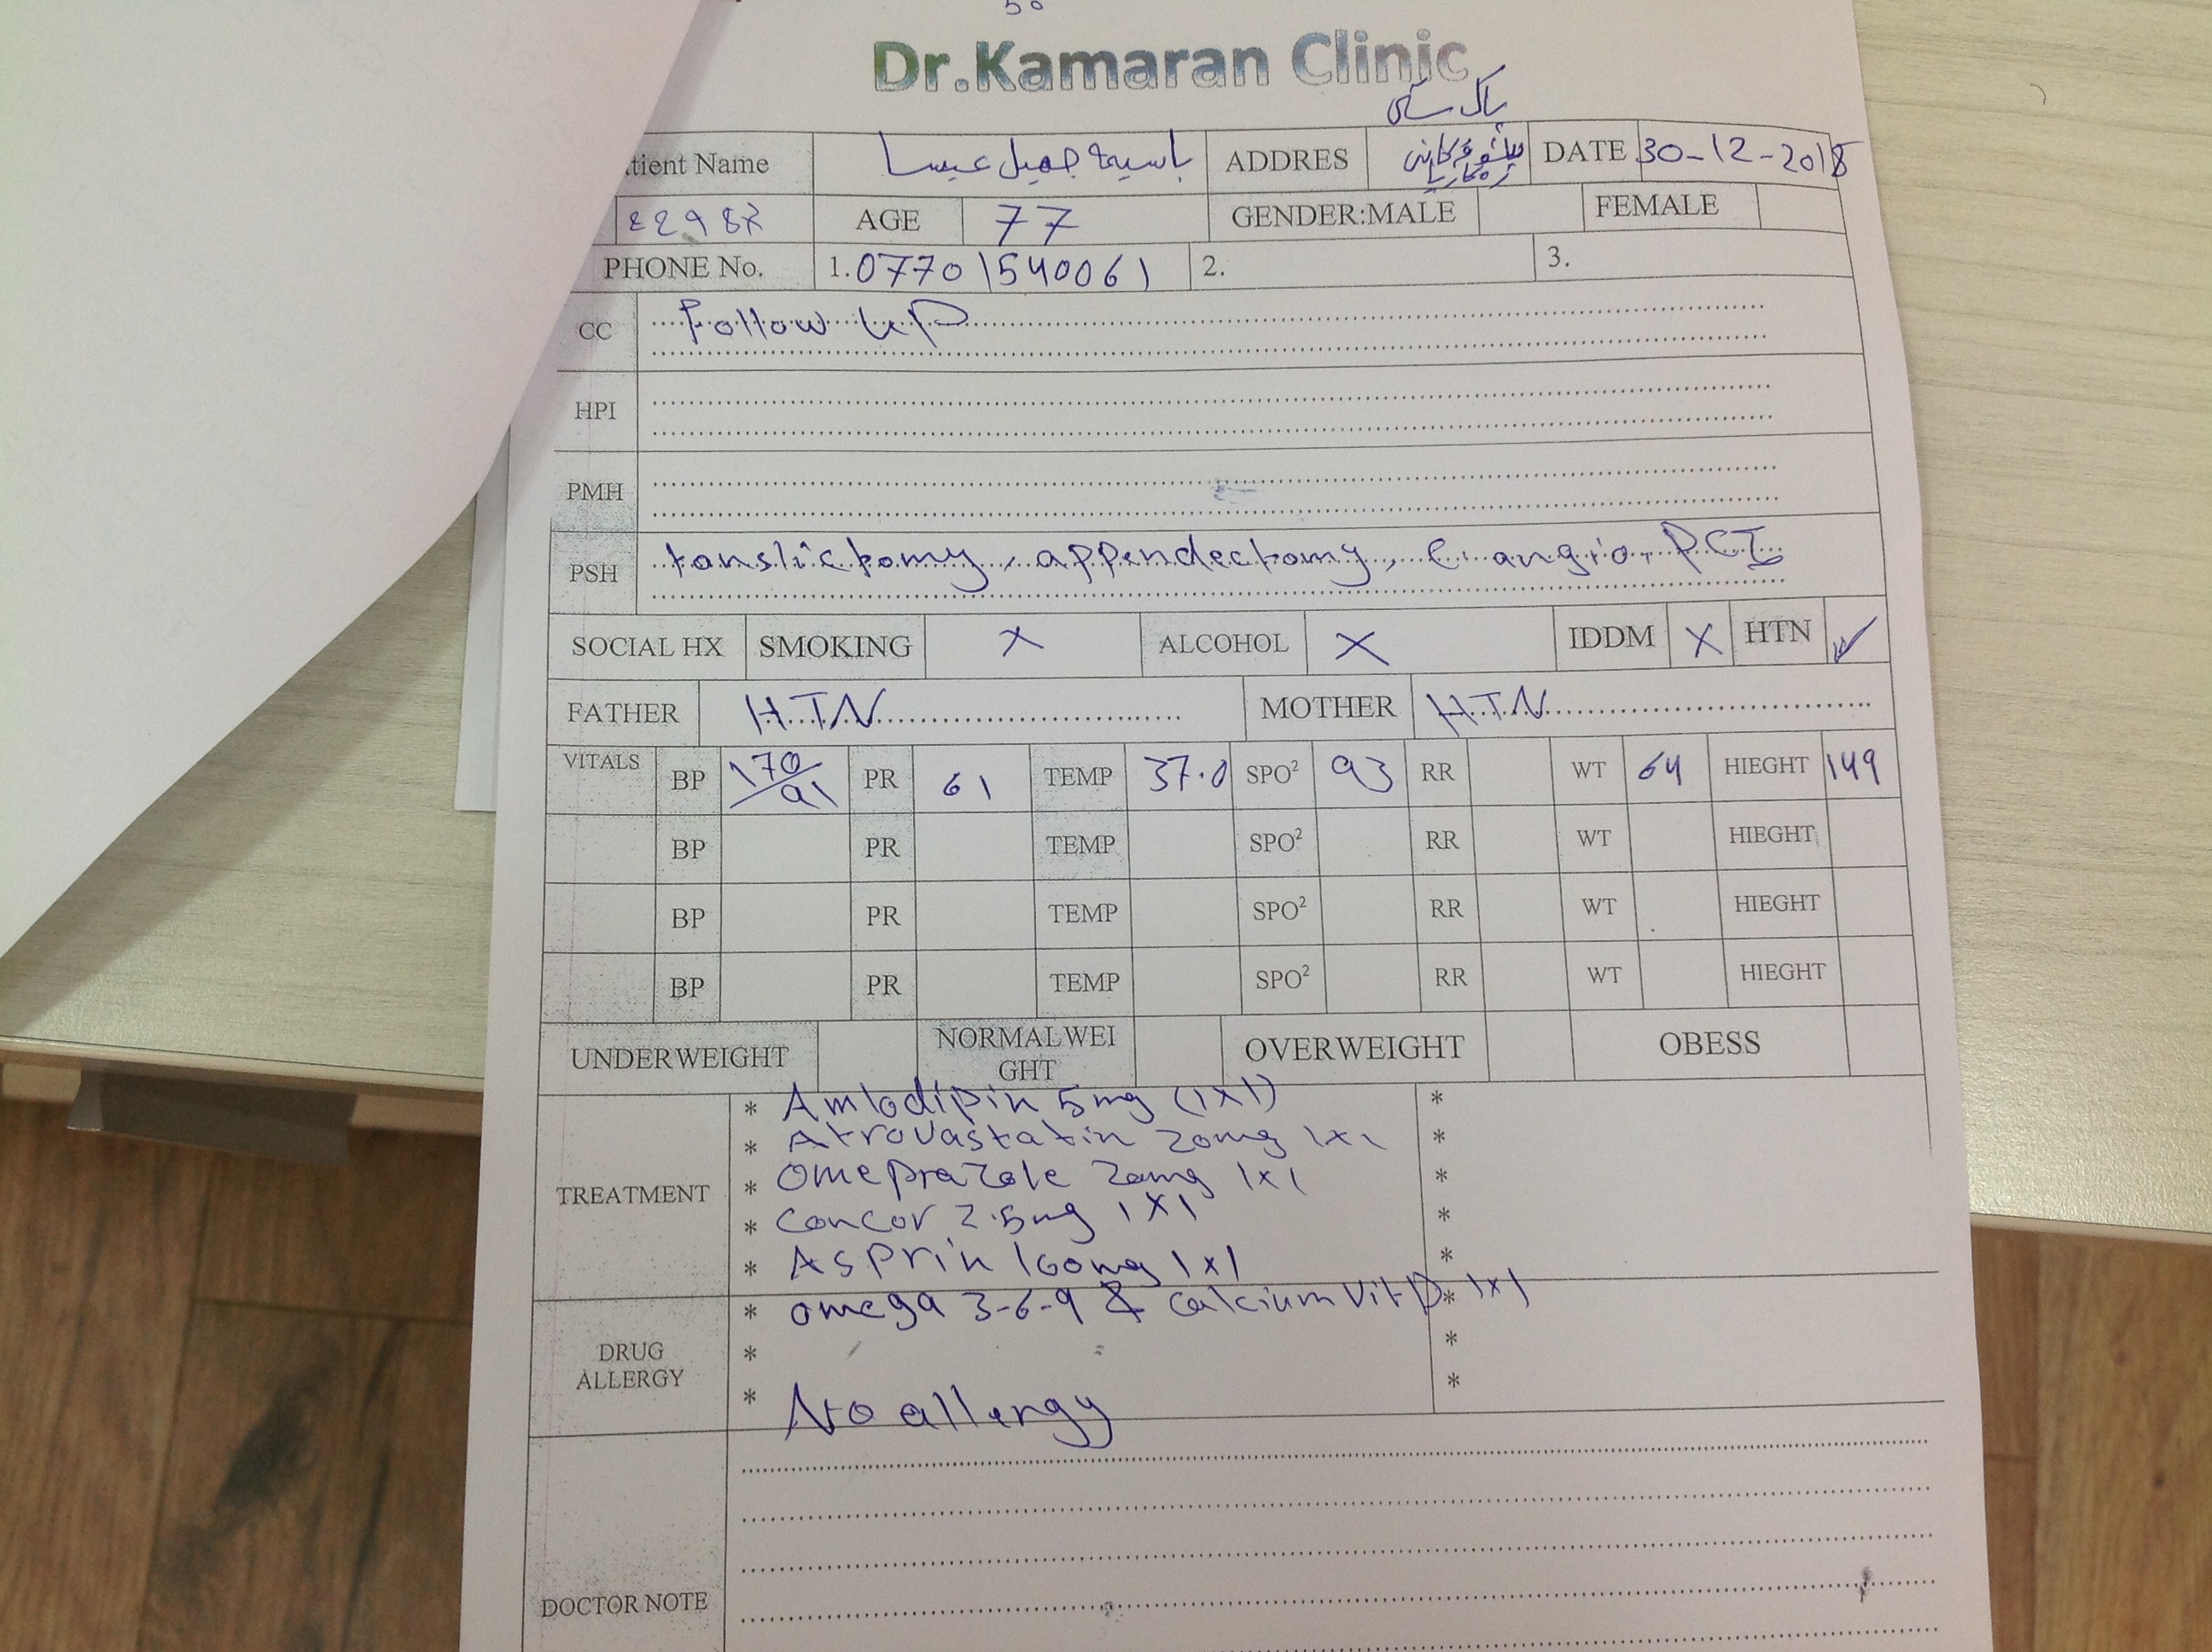 Dr.Kamaran Clinic
tient Name باسيمة جميل عيسا ADDRES DATE 30-12-2018
AGE 77 GENDER:MALE FEMALE
PHONE No. 1. 07701540061 2. 3.
CC Follow up
HPI
PMH
PSH tonslictomy, appendectomy, C angio, PCI
SOCIAL HX SMOKING X ALCOHOL X IDDM X HTN ✓
FATHER HTN MOTHER HTN
VITALS BP 170/91 PR 61 TEMP 37.0 SPO² 93 RR WT 64 HIEGHT 149
BP PR TEMP SPO² RR WT HIEGHT
BP PR TEMP SPO² RR WT HIEGHT
BP PR TEMP SPO² RR WT HIEGHT
UNDERWEIGHT NORMALWEI
GHT OVERWEIGHT OBESS
TREATMENT
* Amlodipin 5mg (1x1) *
* Atrovastatin 20mg 1x1 *
* Omeprazole 20mg 1x1 *
* Concor 2.5mg 1X1 *
* Asprin 100mg 1x1 *
* omega 3-6-9 & calcium vit D * 1x1
DRUG
ALLERGY
* *
* No allergy *
DOCTOR NOTE